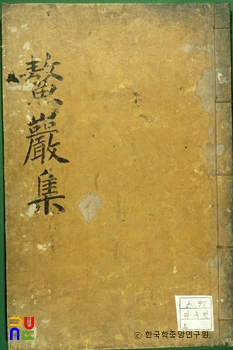 鰲巖集
© 한국학중앙연구원